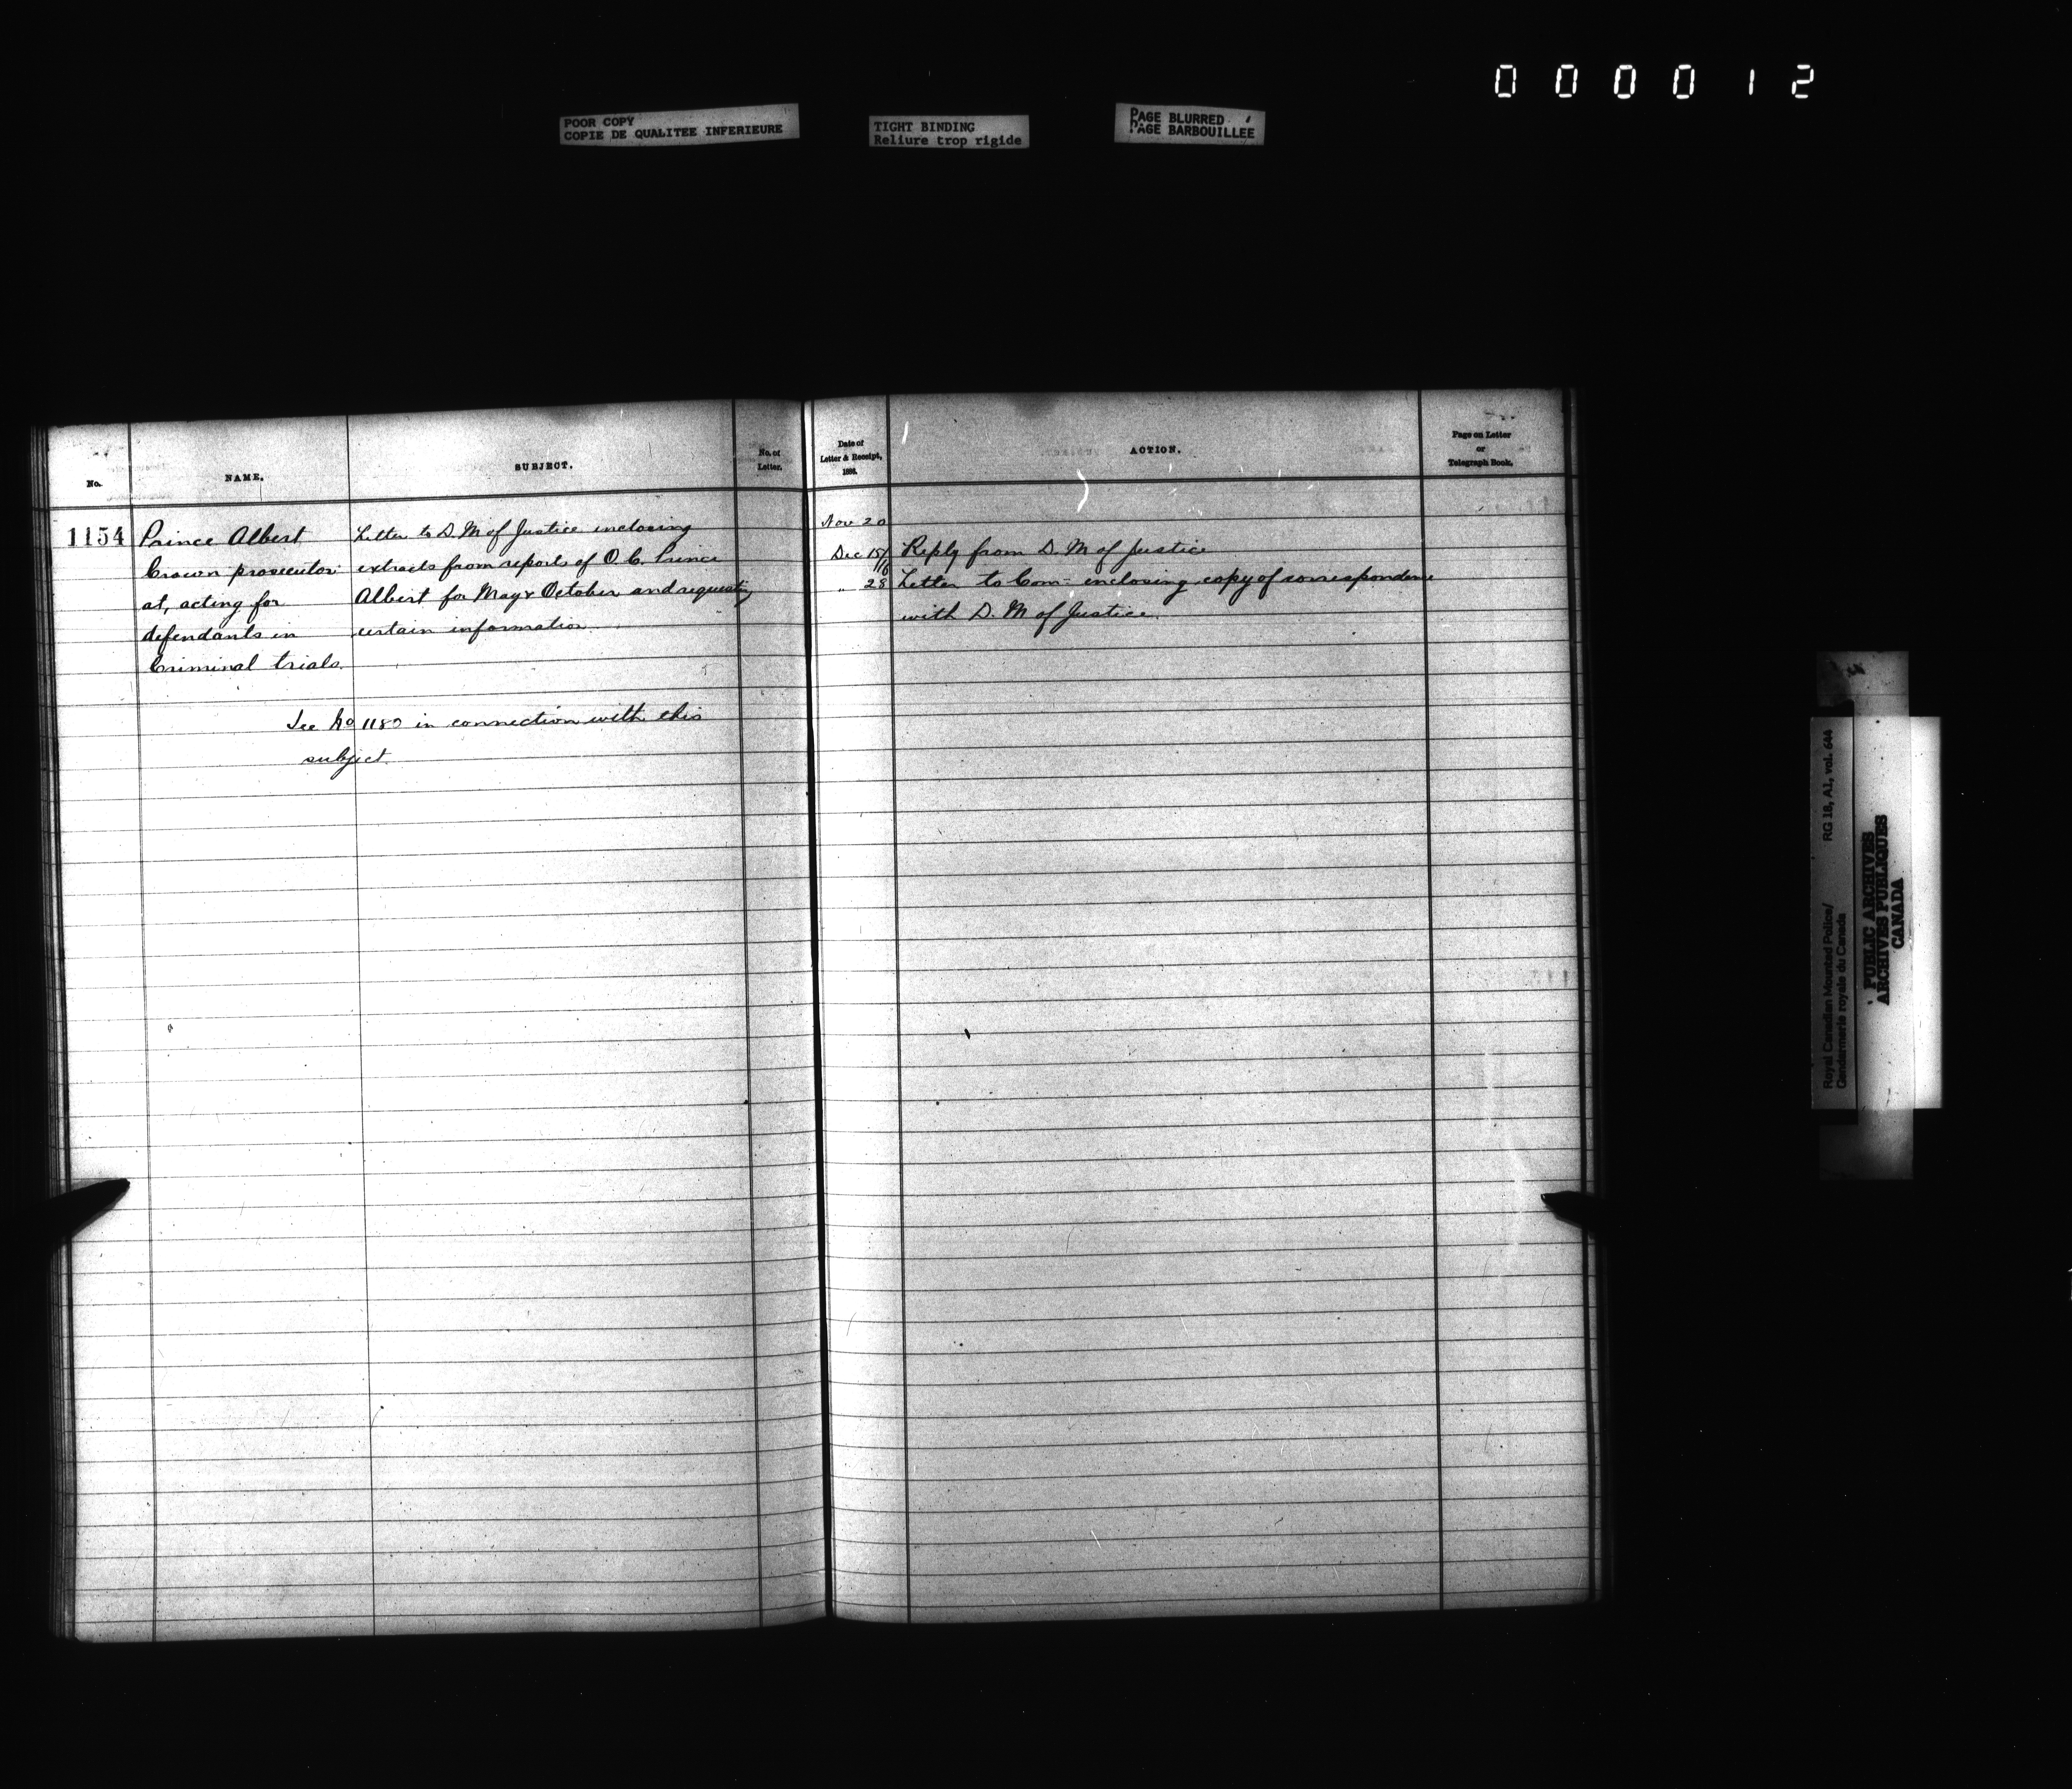 000012
POOR COPY
COPIE DE QUALITEE INFERIEURE
TIGHT BINDING
Reliure trop rigide
PAGE BLURRED
PAGE BARBOUILLEE
No.
NAME.
SUBJECT.
No. of
Letter.
1154
Prince Albert
Crown prosecutor
at, acting for
defendants in
Criminal trials.
Letter to D. M of Justice inclosing
extracts from reports of O. C. Prince
Albert for May & October and requesting
certain information
See No 1180 in connection with this
subject.
Date of
Letter & Receipt,
1886.
ACTION.
Page on Letter
or
Telegraph Book.
Nov 20
Dec 15/16 Reply from D. M of Justice
" 28 Letter to Com- inclosing copy of correspondence
with D. M of Justice.
Royal Canadian Mounted Police/
Gendarmerie royale du Canada
RG 18, A1, vol. 644
PUBLIC ARCHIVES
ARCHIVES PUBLIQUES
CANADA